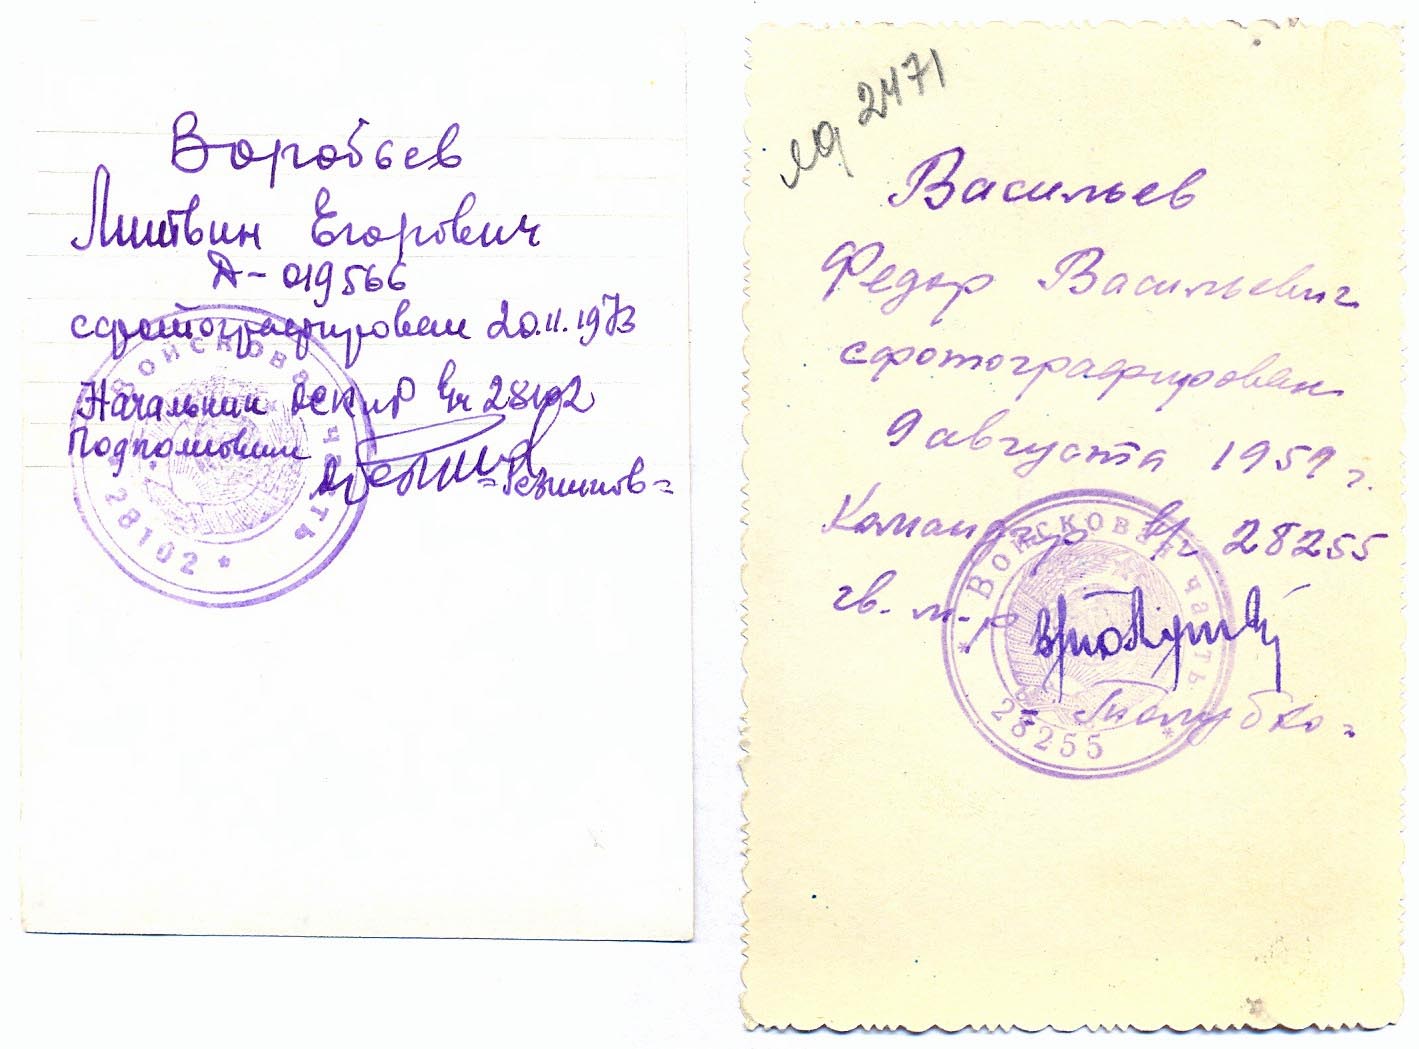 Воробьев
Литвин Егорович
Д-019566
сфотографирован 20.11.1973
Начальник ОСКиР в/ч 28102
Подполковник
Войсковая часть
* 28102 *
лд 2471
Васильев
Федор Васильевич
сфотографирован
9 августа 1959 г.
Командир в/ч 28255
гв. м-р
Войсковая часть
* 28255 *